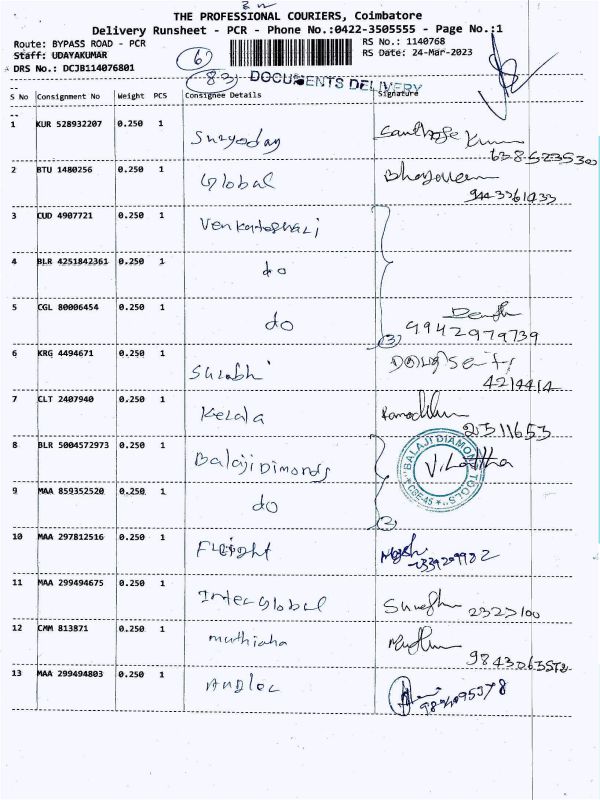 THE PROFESSIONAL COURIERS, Coimbatore
Delivery Runsheet - PCR - Phone No.:0422-3505555 - Page No.:1
Route: BYPASS ROAD - PCR
Staff: UDAYAKUMAR
DRS No.: DCJB114076801
RS No.: 1140768
RS Date: 24-Mar-2023
DOCUMENTS DELIVERY
S No Consignment No Weight PCS Consignee Details Signature
1 KUR 528932207 0.250 1 Suryoday
2 BTU 1480256 0.250 1 Global
3 CUD 4907721 0.250 1
4 BLR 4251842361 0.250 1 do
5 CGL 80006454 0.250 1 do
(3) 9942979739
6 KRG 4494671 0.250 1 Surabhi
4214414
7 CLT 2407940 0.250 1 Kerala
2311653
8 BLR 5004572973 0.250 1 Balaji Dimonds
BALAJI DIAMOND TOOLS CBE-45
V. Lalitha
9 MAA 859352520 0.250 1 do
(2)
10 MAA 297812516 0.250 1 Flight
11 MAA 299494675 0.250 1 Inter Global
12 CMM 813871 0.250 1 muthiaha
13 MAA 299494803 0.250 1